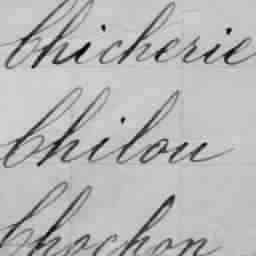 Chicherie
Chilou
Chochon